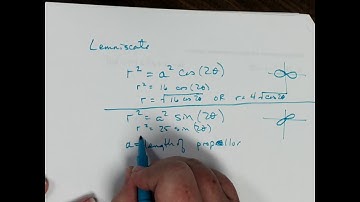 Lemniscate
r² = a² cos(2θ)
r² = 16 cos(2θ)
r = √16 cos2θ OR r = 4√cos2θ
r² = a² sin(2θ)
r² = 25 sin(2θ)
a = length of propellor